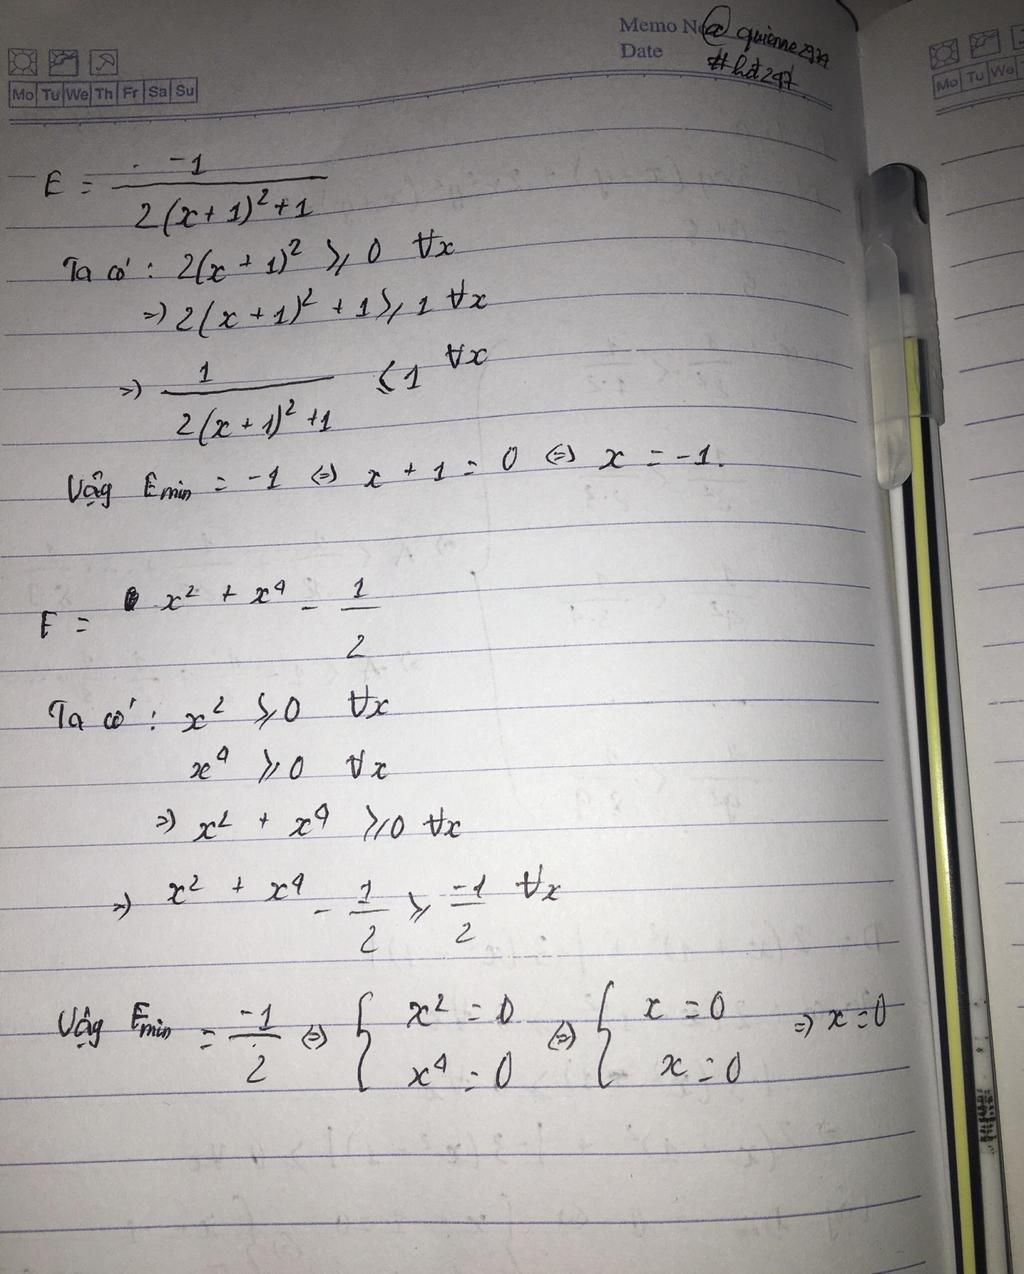 Memo No
@quienne2929
Date
#hd247
Mo Tu We Th Fr Sa Su
Mo Tu We
E = -1 / 2(x+1)² + 1
Ta có: 2(x+1)² ≥ 0 ∀x
=> 2(x+1)² + 1 ≥ 1 ∀x
=> 1 / 2(x+1)² + 1 ≤ 1 ∀x
Vậy Emin = -1 (=) x + 1 = 0 (=) x = -1.
F = x² + x⁴ - 1/2
Ta có: x² ≥ 0 ∀x
x⁴ ≥ 0 ∀x
=> x² + x⁴ ≥ 0 ∀x
=> x² + x⁴ - 1/2 ≥ -1/2 ∀x
Vậy Emin = -1/2 (=) { x² = 0 (=) { x = 0 => x = 0
x⁴ = 0 x = 0